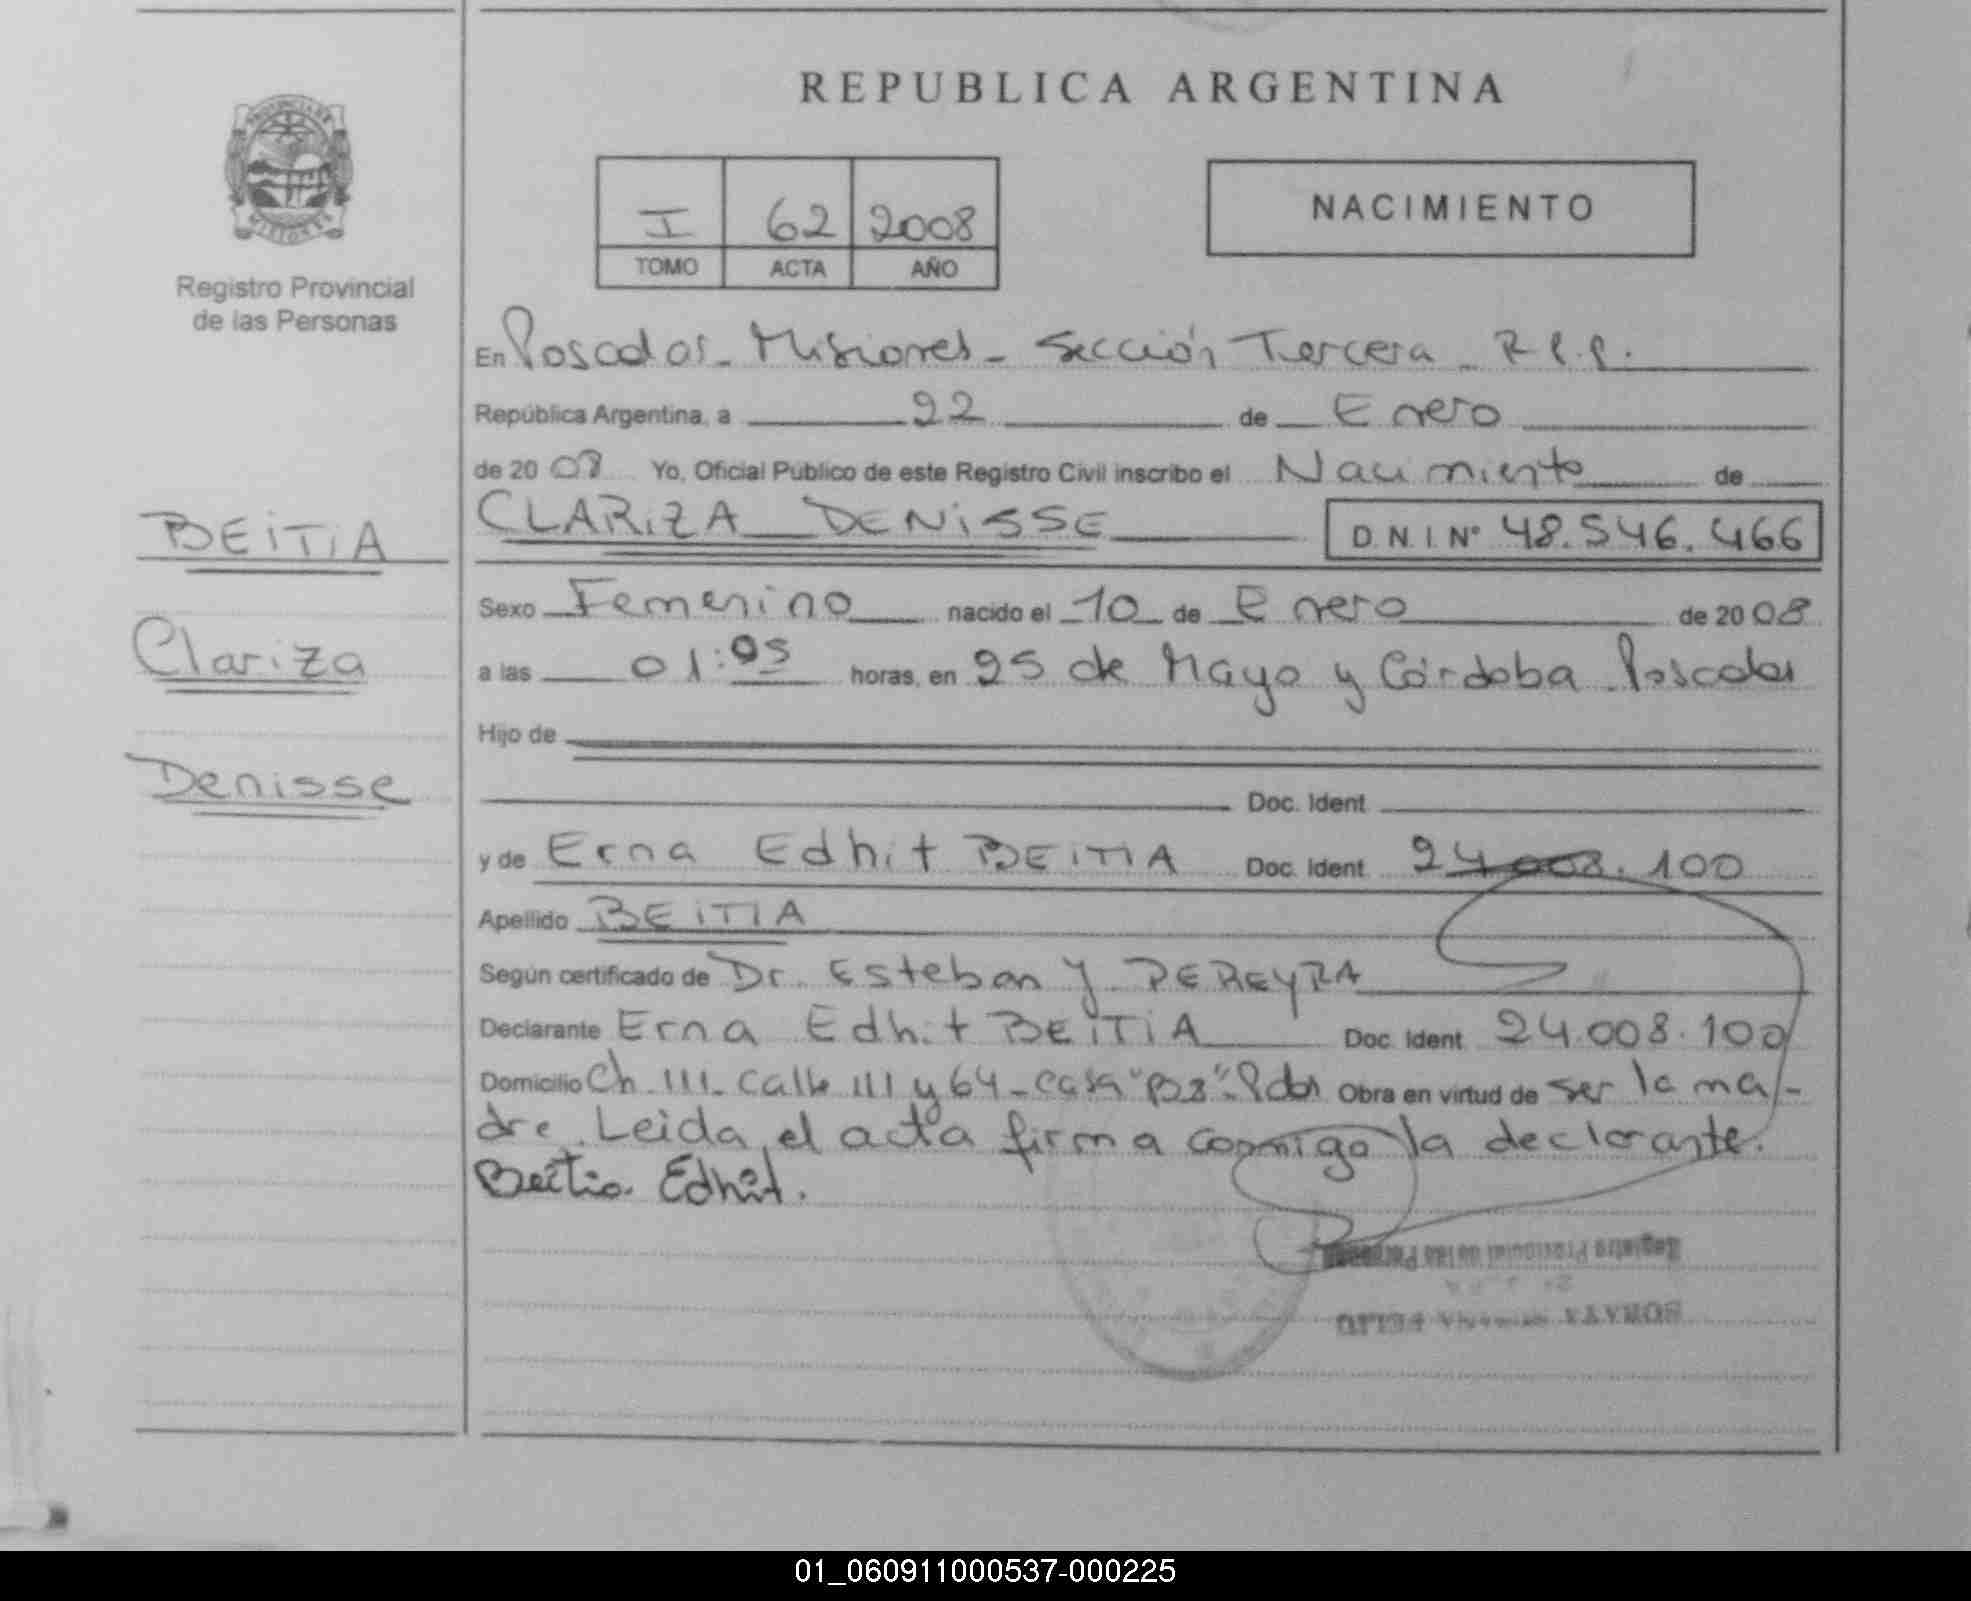 REPUBLICA ARGENTINA
PROVINCIA DE MISIONES
Registro Provincial
de las Personas
I 62 2008
TOMO ACTA AÑO
NACIMIENTO
En Posadas - Misiones - Sección Tercera - R.P.P.
República Argentina, a 22 de Enero
de 20 08 Yo, Oficial Público de este Registro Civil inscribo el Nacimiento de
BEITIA
CLARIZA DENISSE D.N.I. Nº 48.546.466
Sexo Femenino nacido el 10 de Enero de 20 08
Clariza
a las 01:05 horas, en 25 de Mayo y Córdoba Posadas
Hijo de
Denisse
Doc. Ident.
y de Erna Edhit BEITIA Doc. Ident. 24.008.100
Apellido BEITIA
Según certificado de Dr. Esteban Y PEREYRA
Declarante Erna Edhit BEITIA Doc. Ident. 24.008.100
Domicilio Ch. 111 - Calle 111 y 64 - casa Pdas Obra en virtud de ser la ma-
dre. Leida el acta firma conmigo la declarante.
Beitia Edhit.
Registro Provincial de las Personas
SORAYA FELIU
01_060911000537-000225